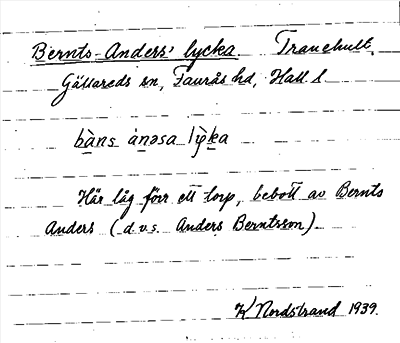 Bernts-Anders' lycka. Tranehult,
Gällareds sn, Faurås hd, Hall l.
bàns ànəsa lỳka
Här låg förr ett torp, bebott av Bernts
Anders (d.v.s. Anders Berntsson).
K Nordstrand 1939.